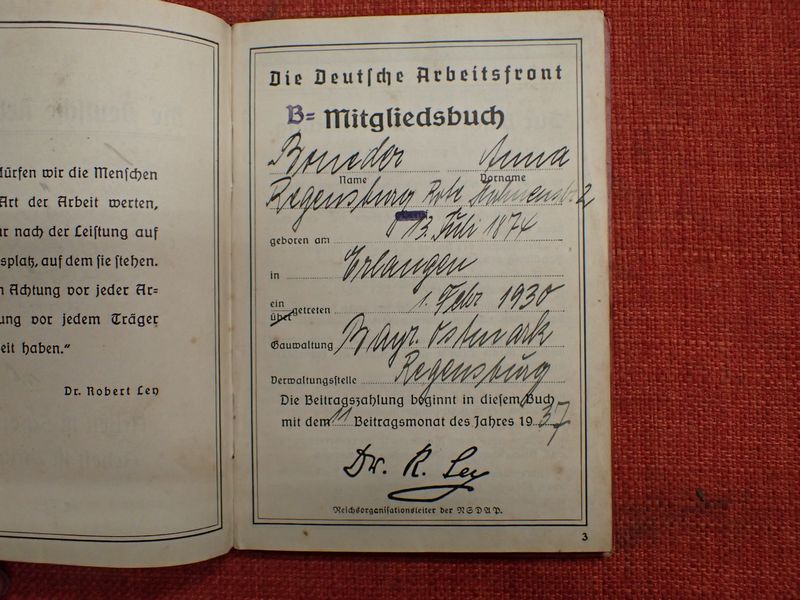 dürfen wir die Menschen
Art der Arbeit werten,
ur nach der Leistung auf
splatz, auf dem sie stehen.
n Achtung vor jeder Ar-
ung vor jedem Träger
eit haben."
Dr. Robert Ley
Die Deutsche Arbeitsfront
B= Mitgliedsbuch
Anna
Name Vorname
Regensburg 2
geboren am 13. Juli 1874
in Erlangen
ein
über getreten 1. Febr 1930
Gauwaltung Bayr. Ostmark
Verwaltungsstelle Regensburg
Die Beitragszahlung beginnt in diesem Buch
mit dem 11 Beitragsmonat des Jahres 1937
Dr. R. Ley
Reichsorganisationsleiter der NSDAP.
3